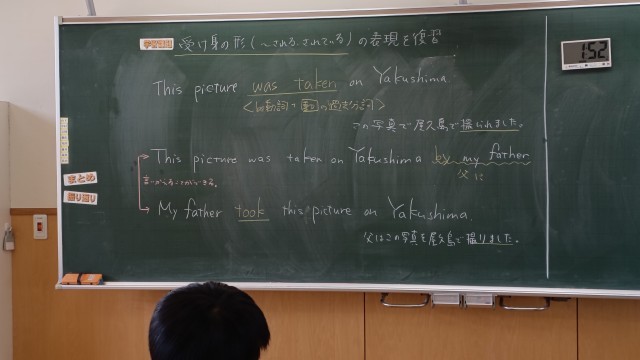 学習課題 受け身の形(~される、されている)の表現を復習
1:52
This picture was taken on Yakushima.
<be動詞+動の過去分詞>
この写真で屋久島で撮られました。
This picture was taken on Yakushima by my father
父に
言いかえることができる。
まとめ
振り返り
My father took this picture on Yakushima.
父はこの写真を屋久島で撮りました。